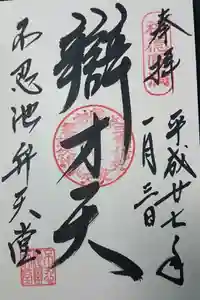 奉拝
平成廿七年
一月三日
辯才天
不忍池弁天堂